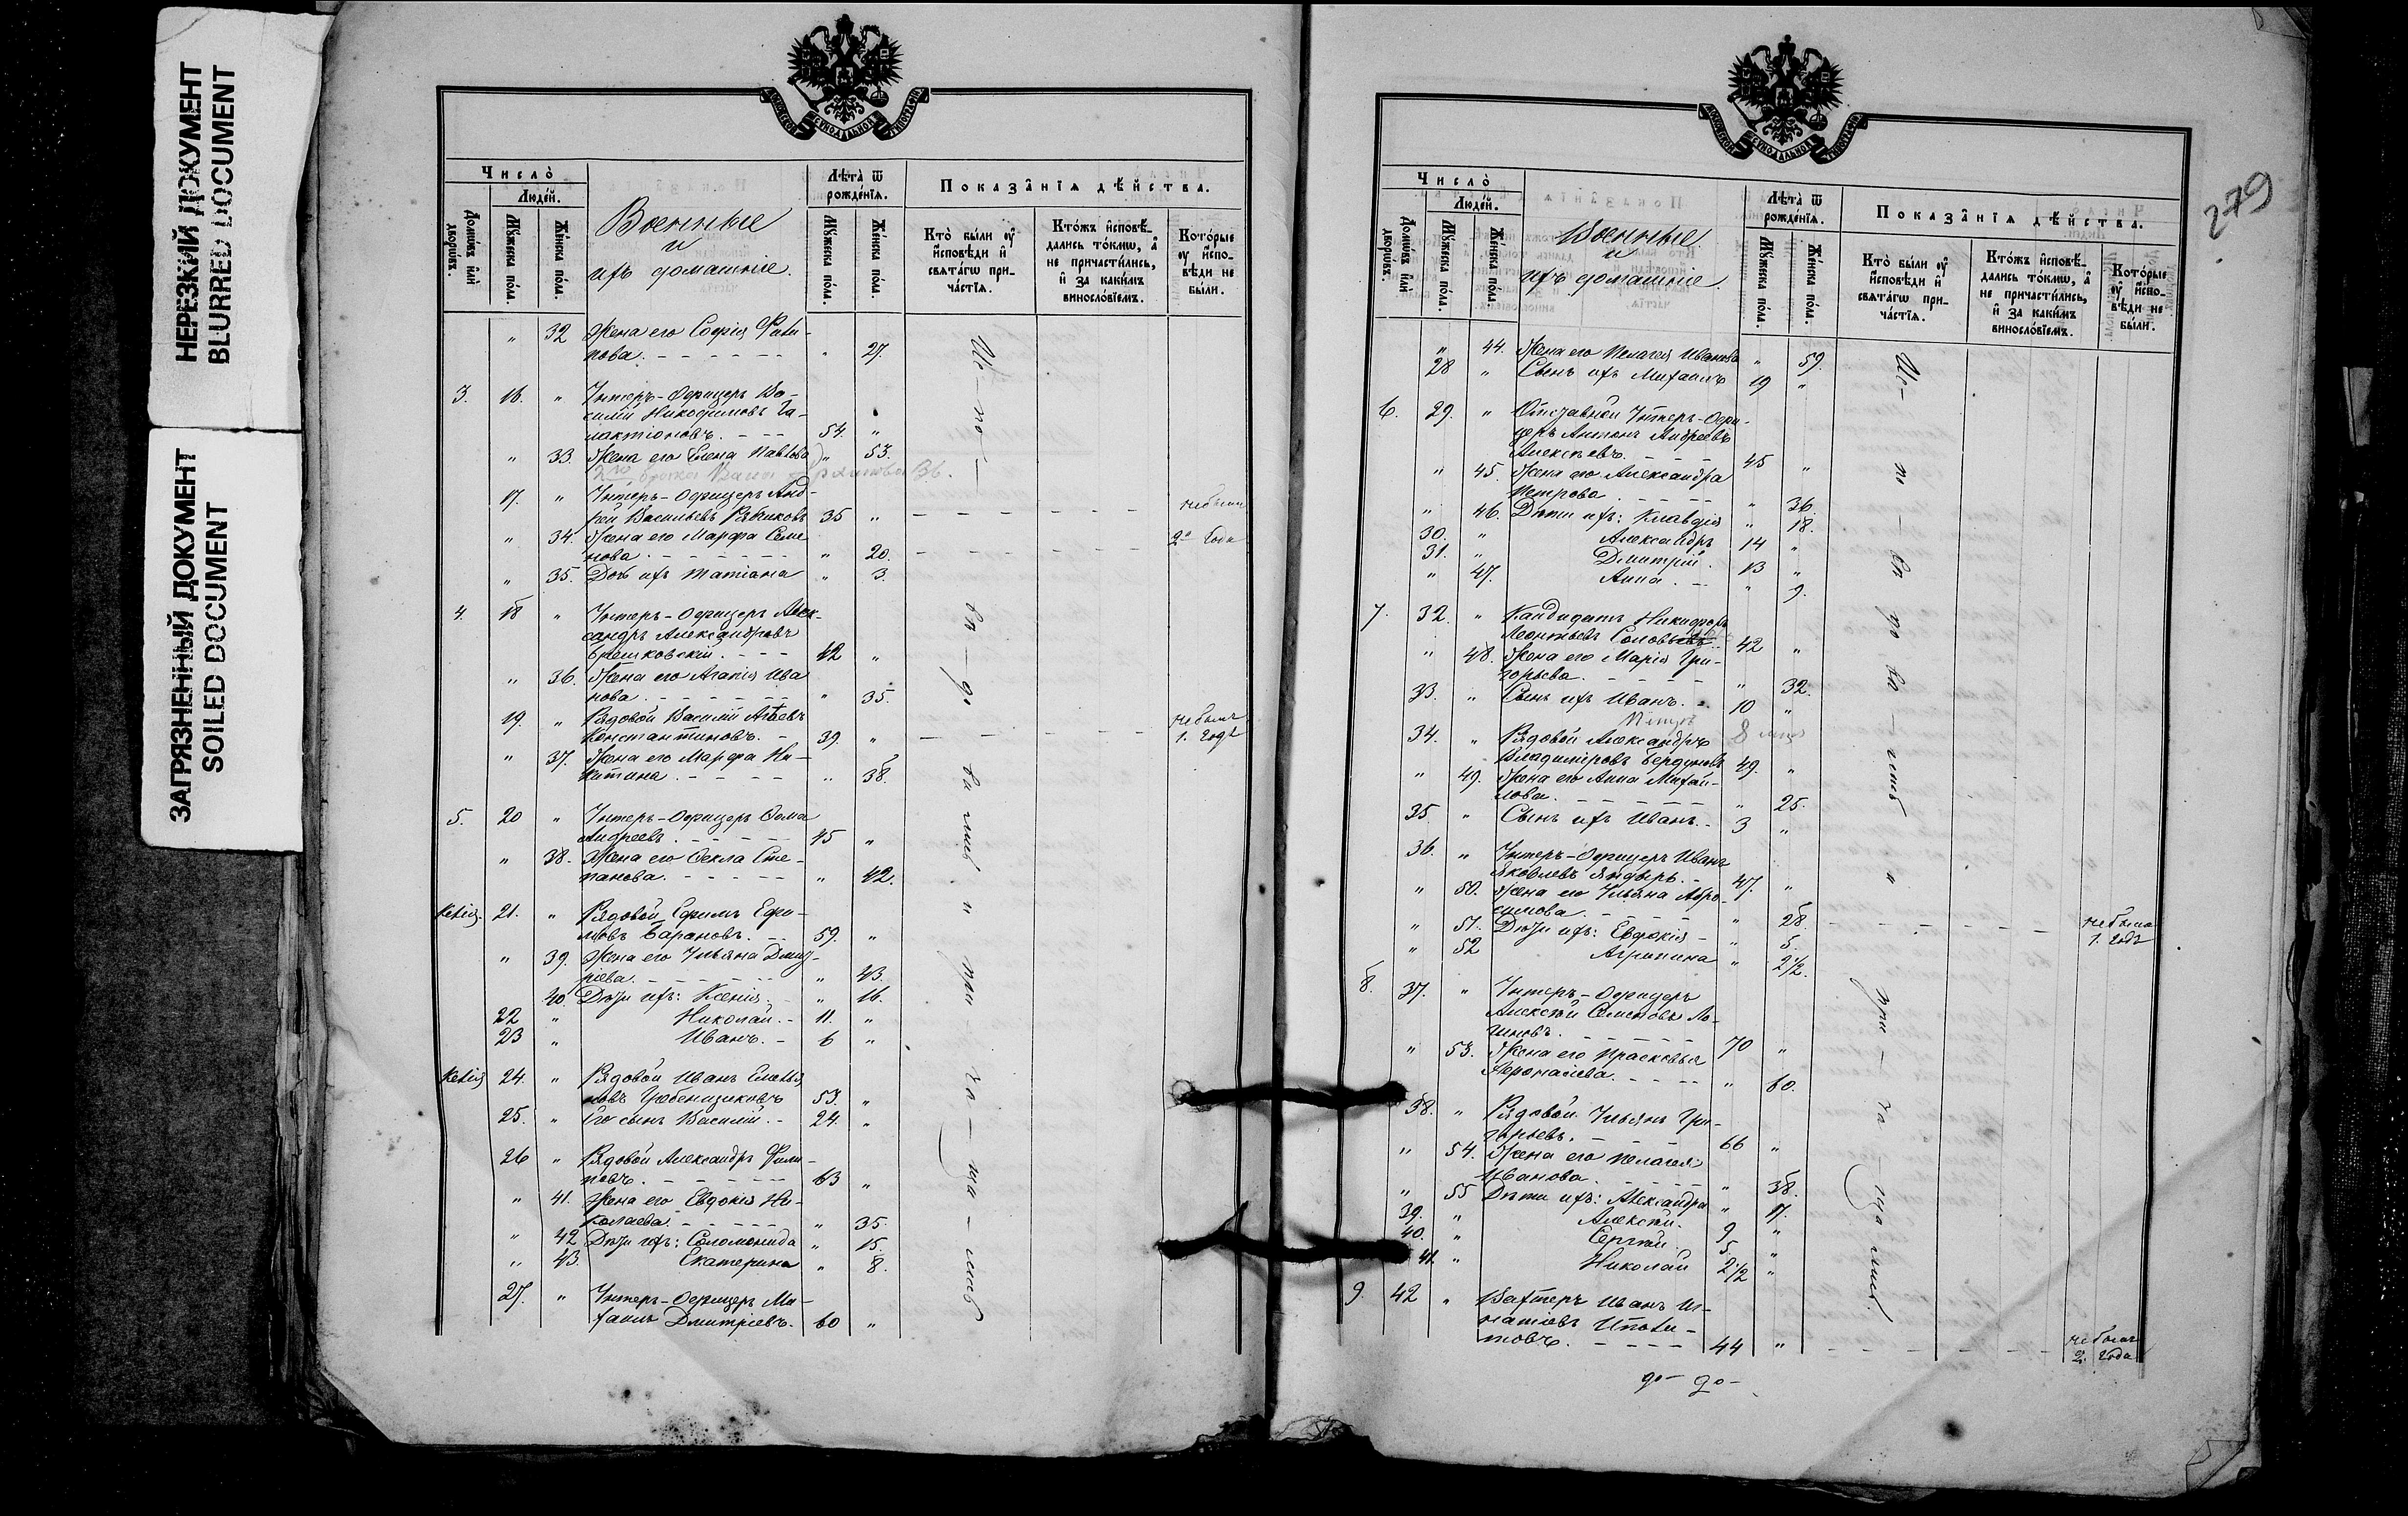 НЕРЕЗКИЙ ДОКУМЕНТ
BLURRED DOCUMENT
ЗАГРЯЗНЕННЫЙ ДОКУМЕНТ
SOILED DOCUMENT
МОСКОВСКОЙ СУНОДАЛЬНОЙ ТИПОГРАФІИ
Число̀
Людéй.
Домѡ́въ и҆лѝ дворѡ́въ.
Мꙋ́жеска по́ла.
Же́нска по́ла.
Военные
и
ихъ домашніе.
Лѣ́та ѿ рожде́нїѧ.
Мꙋ́жеска по́ла.
Же́нска по́ла.
Показа̑нїѧ дѣ́йства.
Кто̀ бы́ли ᲂу҆ и҆сповѣ́ди и҆ свѧта́гѡ при-ча́стїѧ.
Кто́жъ и҆сповѣ́-дались то́кмѡ, а҆ не причасти́лись, и҆ за каки́мъ виносло́вїемъ.
Кото́рые ᲂу҆ и҆спо-вѣ́ди не бы́ли.
" 32 Жена его Софія Фили-
пова. " 27.
3. 16. " Унтеръ-Офицеръ Ва-
силій Никодимовъ Га-
лактіоновъ. 54. "
" 33. Жена его Елена Павлова " 53.
17. " Унтеръ-Офицеръ Анд-
рей Васильевъ Рябчиковъ 35 " не были
" 34. Жена его Марфа Семе
нова. " 20. 2 года
" 35. Дочь ихъ Татіана " 3.
4. 18 " Унтеръ-Офицеръ Алек-
сандръ Александровъ
42 "
" 36. Жена его Агапія Ива
нова. " 35.
19. " Рядовой Василій
Константиновъ. 39. " не былъ 1. годъ
" 37. Жена его Марфа Ни-
китина. " 38.
5. 20 " Унтеръ-Офицеръ Ѳома
Андреевъ. 45 "
" 38. Жена его Ѳекла Сте-
панова. " 42.
Келія. 21. " Рядовой Ефимъ Ефи-
мовъ Барановъ. 59. "
" 39. Жена его Ульяна Дмит-
ріева. " 43.
40. Дѣти ихъ: Ксенія. " 16.
22 " Николай. 11. "
23 " Иванъ. 6 "
Келія 24. " Рядовой Иванъ Емелья
новъ 53. "
25. " Его сынъ Василій. 24. "
26 " Рядовой Александръ Фили-
повъ. 63 "
" 41. Жена его Евдокія Ни-
колаева. " 35.
" 42 Дѣти ихъ: Соломонида " 15.
" 43. Екатерина " 8.
27. " Унтеръ-Офицеръ Ми-
хаилъ Дмитріевъ. 60 "
Ис-по-вѣ-да-вались и при-ча-ща-лись
279
МОСКОВСКОЙ СУНОДАЛЬНОЙ ТИПОГРАФІИ
Число̀
Людéй.
Домѡ́въ и҆лѝ дворѡ́въ.
Мꙋ́жеска по́ла.
Же́нска по́ла.
Военные
и
ихъ домашніе.
Лѣ́та ѿ рожде́нїѧ.
Мꙋ́жеска по́ла.
Же́нска по́ла.
Показа̑нїѧ дѣ́йства.
Кто̀ бы́ли ᲂу҆ и҆сповѣ́ди и҆ свѧта́гѡ при-ча́стїѧ.
Кто́жъ и҆сповѣ́-дались то́кмѡ, а҆ не причасти́лись, и҆ за каки́мъ виносло́вїемъ.
Кото́рые ᲂу҆ и҆спо-вѣ́ди не бы́ли.
" 44. Жена его Пелагея Иванова " 59.
28 " Сынъ ихъ Михаилъ 19 "
6. 29. " Отставной Унтеръ-Офи-
церъ Антонъ Андреевъ
Алексѣевъ. 45 "
" 45. Жена его Александра
Петрова " 36.
" 46. Дѣти ихъ: Клавдія " 18.
30. " Александръ 14 "
31. " Дмитрій. 13 "
" 47. Анна. " 9.
7. 32. " Кандидатъ Никифоръ
Леонтьевъ Соловьевъ 42 "
" 48. Жена его Марія Гри-
горьева. " 32.
33. " Сынъ ихъ Иванъ. 10 "
34. " Рядовой Александръ
Владиміровъ 49. "
" 49. Жена его Анна Михай-
лова. " 25.
35. " Сынъ ихъ Иванъ. 3 "
36. " Унтеръ-Офицеръ Иванъ
Яковлевъ 47. "
" 50. Жена его Ульяна Абро-
симова. " 28. не была 1. годъ
" 51. Дѣти ихъ: Евдокія " 5.
" 52 Агрипина " 2 1/2.
8. 37. " Унтеръ-Офицеръ
Алексѣй Семеновъ Ло-
гиновъ. 70 "
" 53. Жена его Прасковья
" 60.
38. " Рядовой Ульянъ Гри-
горьевъ. 66 "
" 54. Жена его Пелагея
Иванова. " 38.
" 55 Дѣти ихъ: Александра " 17.
39. " Алексѣй. 9 "
40. " Сергѣй 5. "
41. " Николай 2 1/2 "
9. 42 " Вахтеръ Иванъ Иг-
натіевъ Иполи-
товъ. 44 " не былъ 2. года
Ис-по-вѣ-да-ва-лись и при-ча-ща-лись.